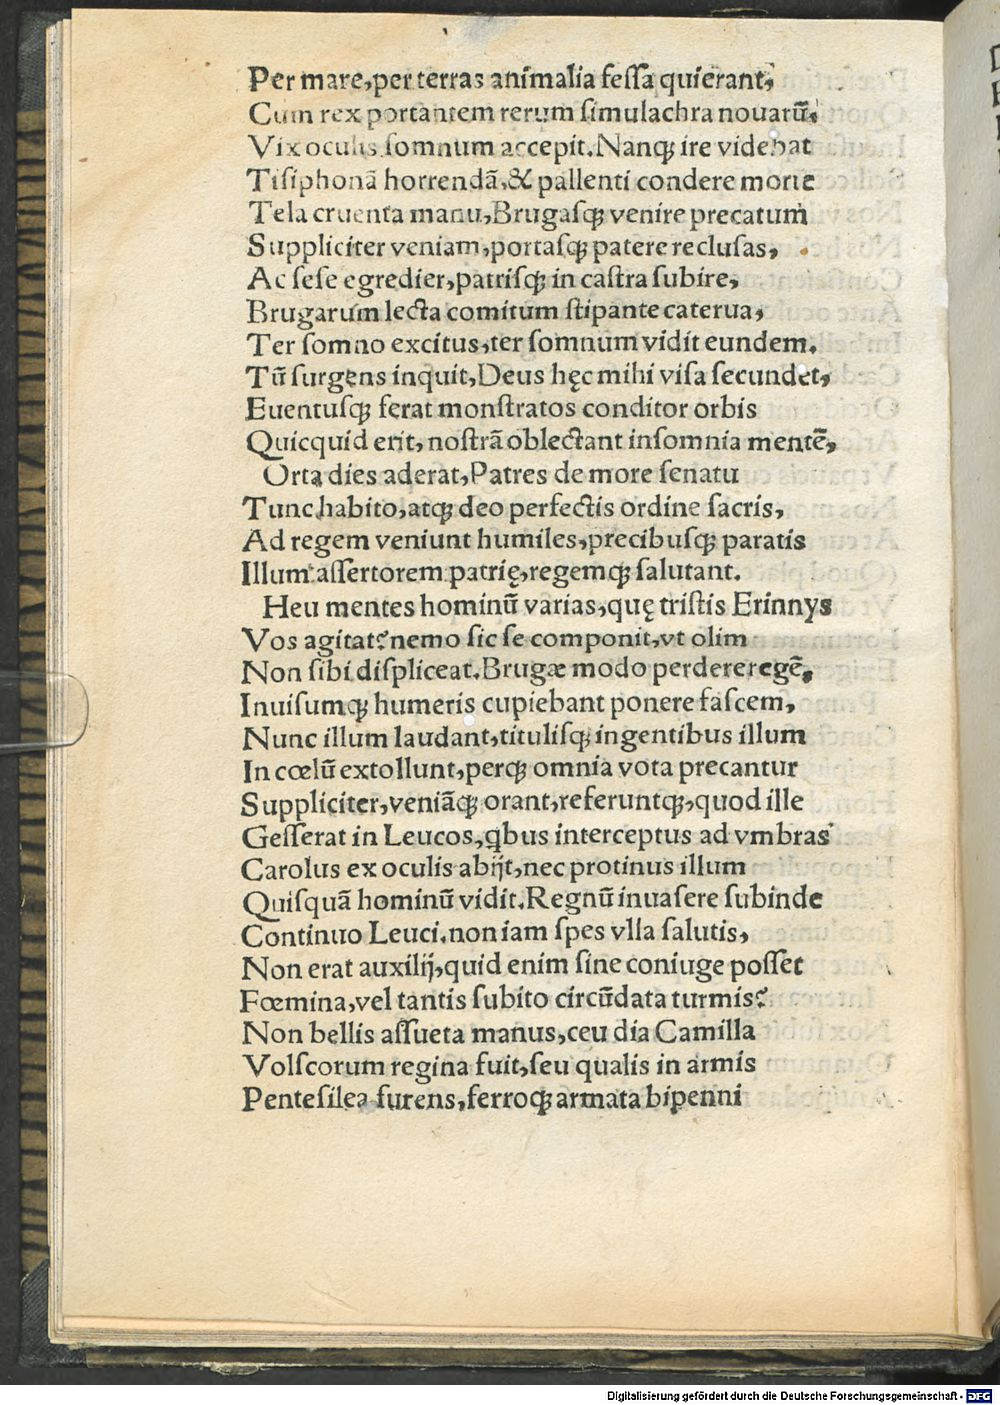 Per mare,per terras animalia fessa quierant,
Cum rex portantem rerum simulachra nouarũ,
Vix oculis somnum accepit.Nanq; ire videbat
Tisiphonã horrendã,& pallenti condere morte
Tela cruenta manu,Brugasq; venire precatum
Suppliciter veniam,portasq; patere reclusas,
Ac sese egredier,patrisq; in castra subire,
Brugarum lecta comitum stipante caterua,
Ter somno excitus,ter somnum vidit eundem.
Tũ surgens inquit,Deus hęc mihi visa secundet,
Euentusq; ferat monstratos conditor orbis
Quicquid erit, nostrã oblectant insomnia mentẽ,
Orta dies aderat,Patres de more senatu
Tunc habito,atq; deo perfectis ordine sacris,
Ad regem veniunt humiles,precibusq; paratis
Illum assertorem patrię,regemq; salutant.
Heu mentes hominũ varias,quę tristis Erinnys
Vos agitat?nemo sic se componit,vt olim
Non sibi displiceat.Brugæ modo perdere regẽ,
Inuisumq; humeris cupiebant ponere fascem,
Nunc illum laudant,titulisq; ingentibus illum
In cœlũ extollunt,perq; omnia vota precantur
Suppliciter,veniãq; orant,referuntq;,quod ille
Gesserat in Leucos,qbus interceptus ad vmbras
Carolus ex oculis abijt,nec protinus illum
Quisquã hominũ vidit.Regnũ inuasere subinde
Continuo Leuci.non iam spes vlla salutis,
Non erat auxilij,quid enim sine coniuge posset
Fœmina,vel tantis subito circũdata turmis?
Non bellis assueta manus,ceu dia Camilla
Volscorum regina fuit,seu qualis in armis
Pentesilea furens,ferroq; armata bipenni
Digitalisierung gefördert durch die Deutsche Forschungsgemeinschaft - DFG